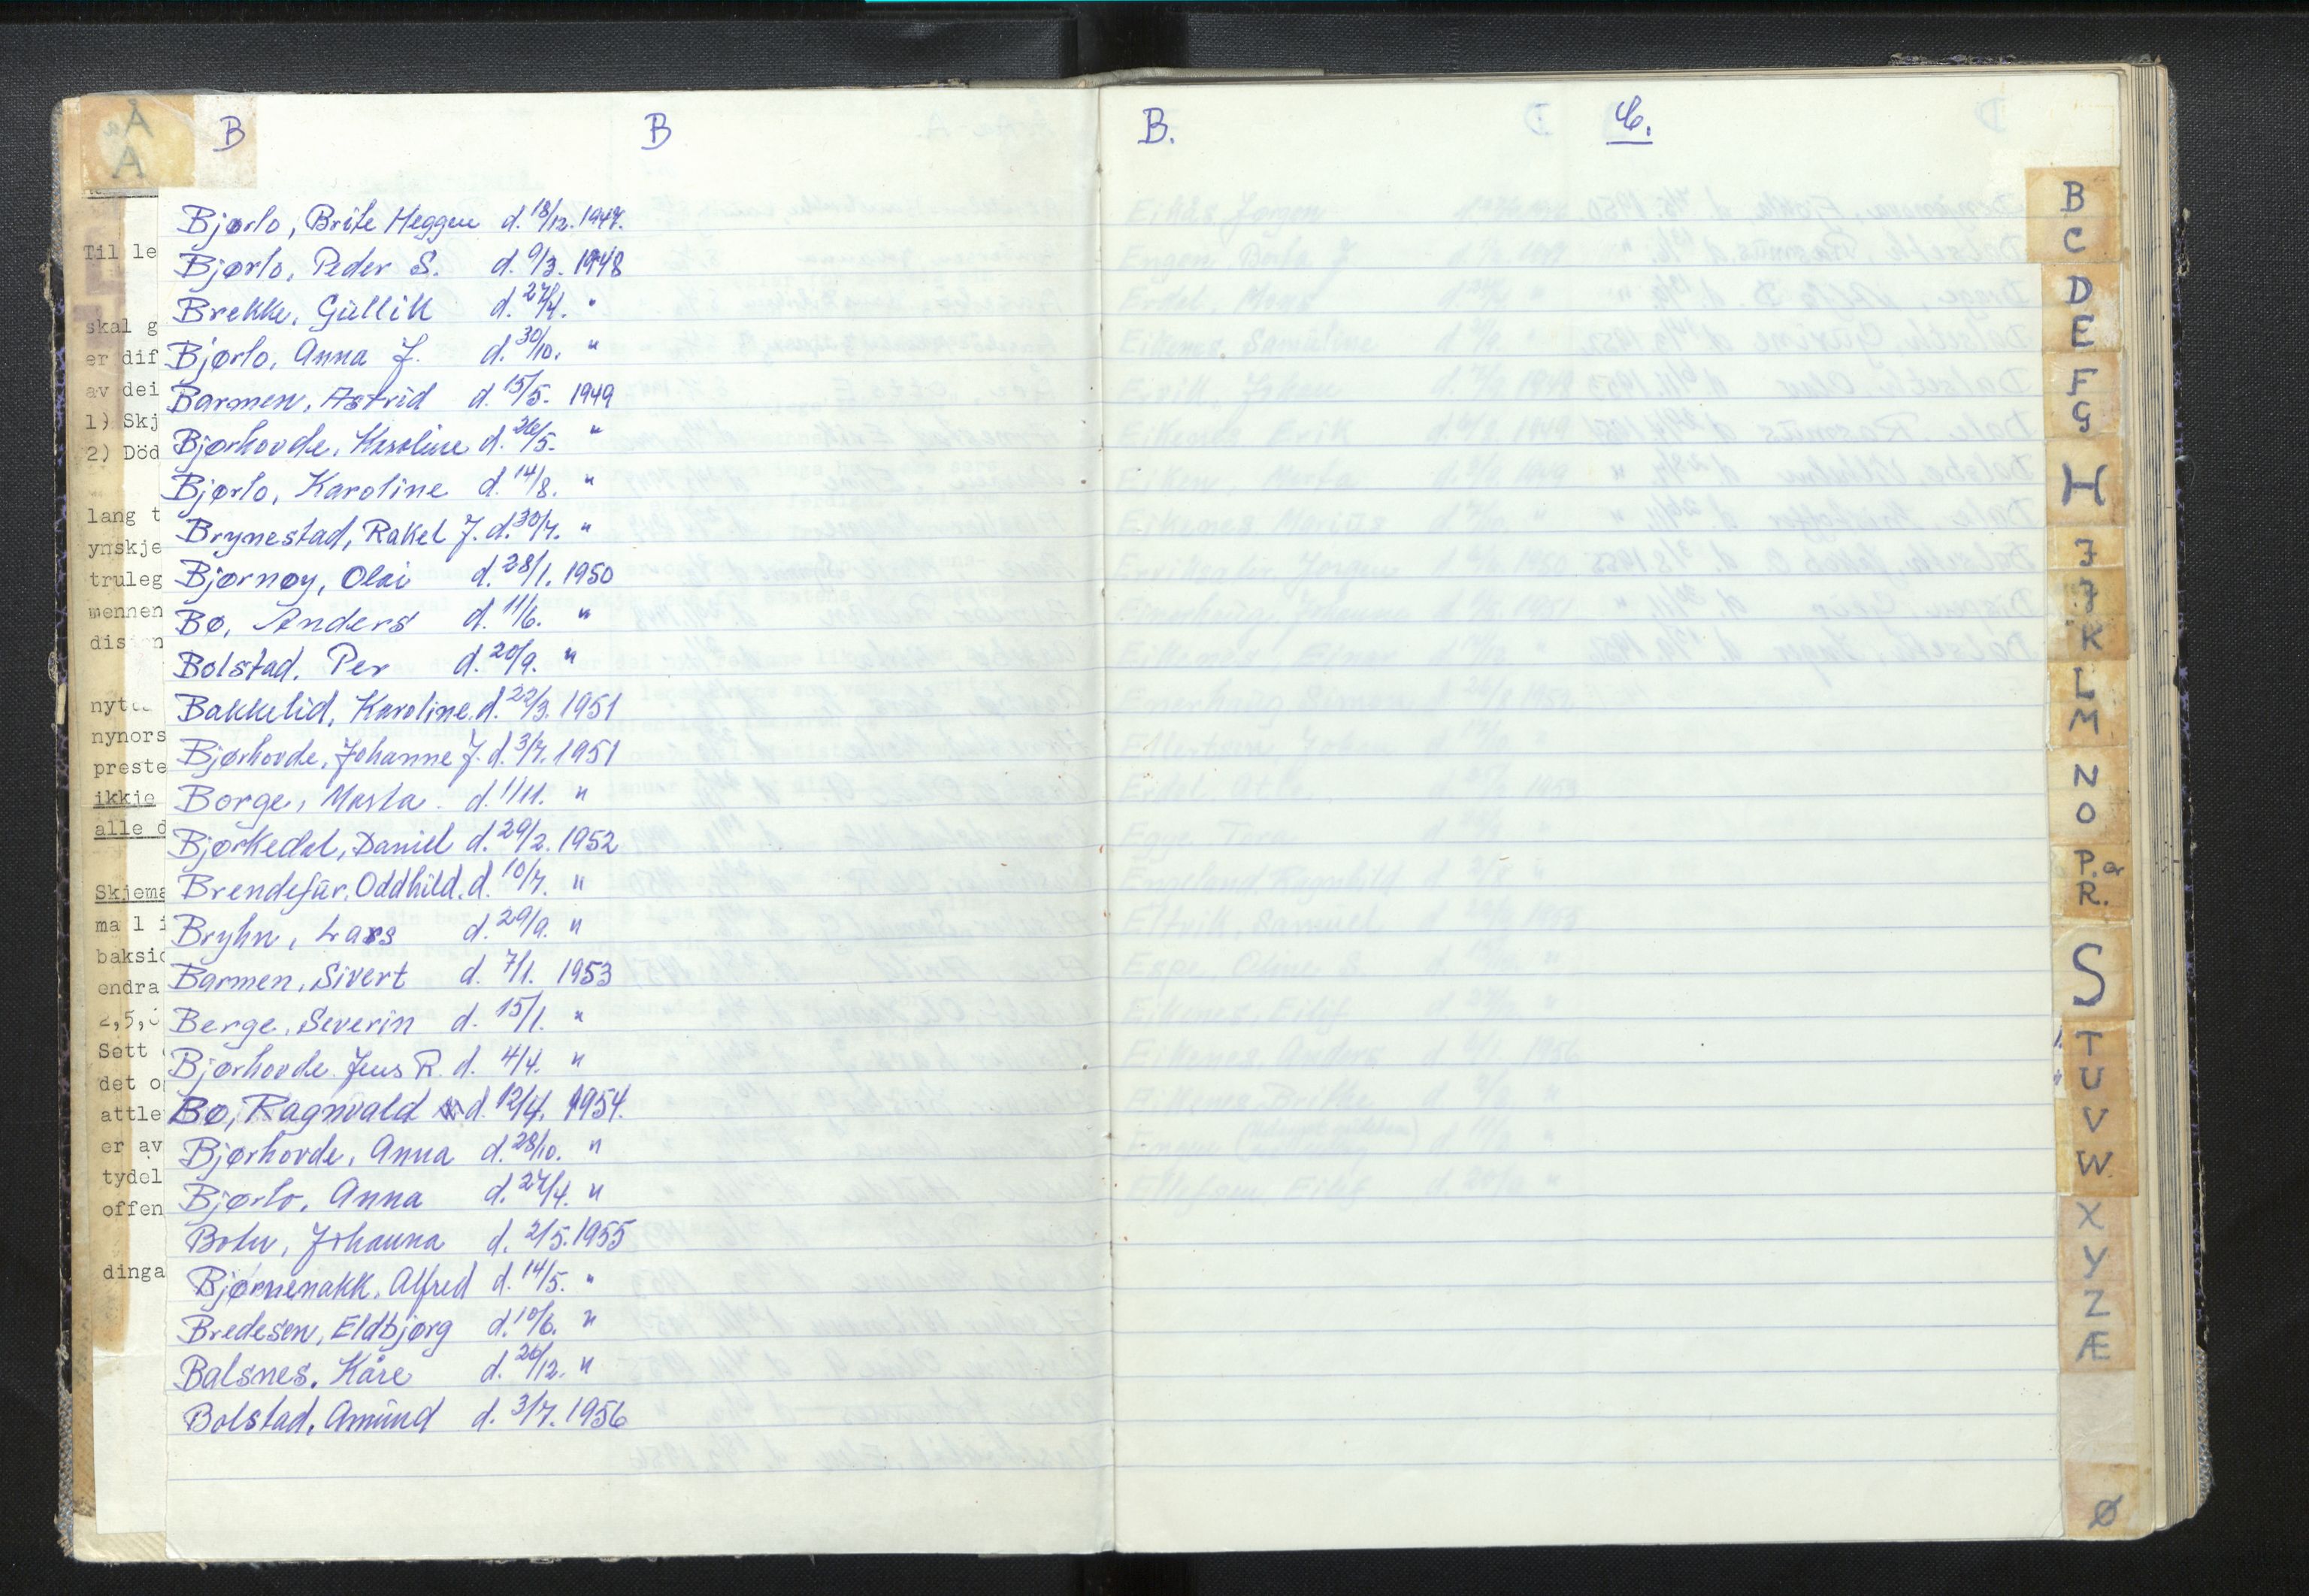 Aa
A
B
B
Bjørlo, Brite Heggen d. 18/12. 1947.
Bjørlo, Peder S. d. 9/3. 1948
Brekke, Gullik d. 27/4. "
Bjørlo, Anna J. d. 30/10. "
Barmen, Astrid d. 15/5. 1949
Bjørhovde, Karoline d. 26/5. "
Bjørlo, Karoline d. 14/8. "
Brynestad, Rakel J. d. 30/7. "
Bjørnøy, Olai d. 28/1. 1950
Bø, Anders d. 11/6. "
Bolstad, Per d. 20/9. "
Bakkelid, Karoline. d. 22/3. 1951
Bjørhovde, Johanne J. d. 3/7. 1951
Borge, Marta d. 1/11. "
Bjørkedal, Daniel d. 29/2. 1952
Brendefur, Oddhild. d. 10/7. "
Bryhn, Lars d. 29/9. "
Barmen, Sivert d. 7/1. 1953
Berge, Severin d. 15/1. "
Bjørhovde Jens R. d. 4/4. "
Bø, Ragnvald d. 12/4. 1954.
Bjørhovde, Anna d. 28/10. "
Bjørlo, Anna d. 27/4. "
Johanna d. 2/5. 1955
Bjørnenakk, Alfred d. 14/5. "
Bredesen, Eldbjørg d. 10/6. "
Balsnes, Kåre d. 26/12. "
Bolstad, Amund d. 3/7. 1956
Til le
skal g
er dif
av dei
1) Skj
2) Död
lang t
ynskje
truleg
mennen
nynors
preste
ikkje
alle d
Skjema
ma l i
baksid
endra
Sett
det o
attle
er av
tydel
offen
dinga
B.
C.
B
C
D
E
F
G
H
I
J
K
L
M
N
O
P. or
R.
S
T
U
V
W.
X
Y
Z
Æ
Ø